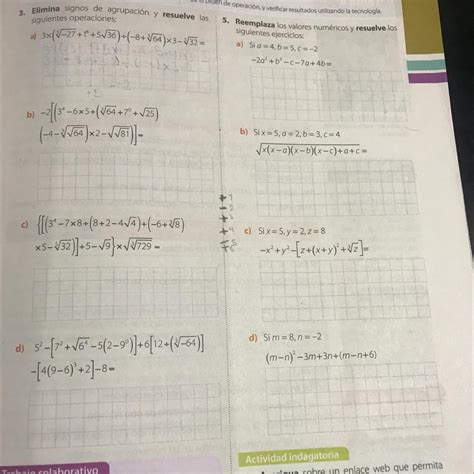 el orden de operación, y verificar resultados utilizando la tecnología.
3. Elimina signos de agrupación y resuelve las
siguientes operaciones:
a) 3×(∛−27+1⁸+5√36)+(−8+∛64)×3−⁵√32=
b) −2[(3⁴−6×5+(∛64+7⁰+√25)
(−4−∛√64)×2−√√81)]=
c) {[(3⁴−7×8+(8+2−4√4)+(−6+∛8)
×5−⁵√32)]+5−√9}×√∛729=
d) 5²−[7²+√6⁴−5(2−9⁰)]+6[12+(∛−64)]
−[4(9−6)³+2]−8=
Trabajo colaborativo
5. Reemplaza los valores numéricos y resuelve los
siguientes ejercicios:
a) Si a=4, b=5, c=−2
−2a²+b³−c−7a+4b=
b) Si x=5, a=2, b=3, c=4
√x(x−a)(x−b)(x−c)+a+c=
c) Si x=5, y=2, z=8
−x²+y²−[z+(x+y)²+∛z]=
d) Si m=8, n=−2
(m−n)²−3m+3n+(m−n+6)
Actividad indagatoria
sobre un enlace web que permita